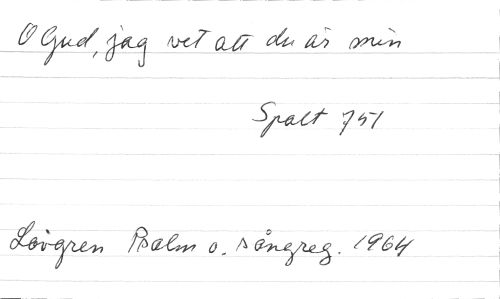 O Gud, jag vet att du är min
Spalt 751
Lövgren Psalm o. sångreg. 1964